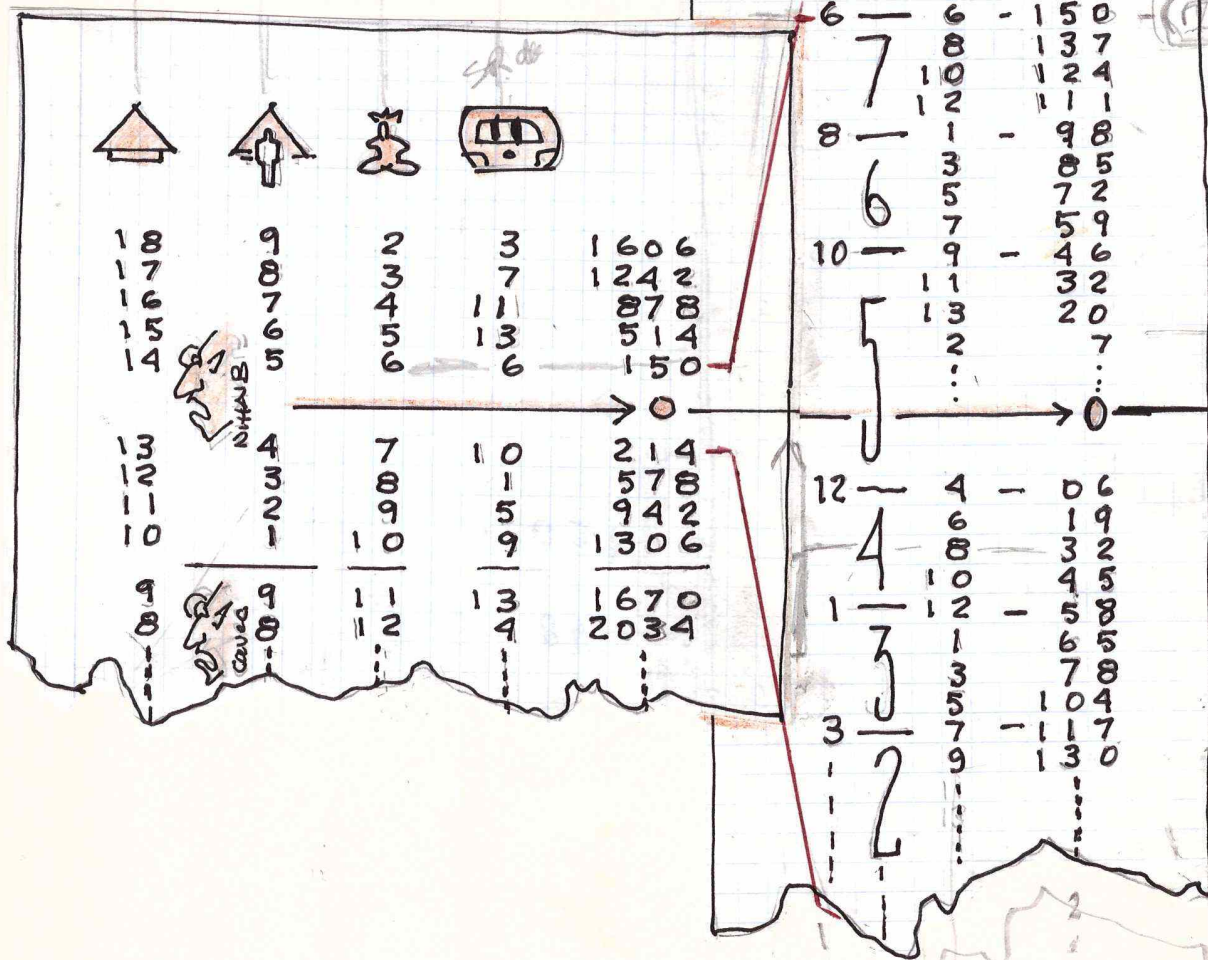 18 9 2 3 1606
17 8 3 7 1242
16 7 4 11 878
15 6 5 13 514
14 5 6 6 150
0
13 4 7 10 214
12 3 8 1 578
11 2 9 5 942
10 1 10 9 1306
9 9 11 13 1670
8 8 12 4 2034
6 — 6 - 150
7
8 137
10 124
12 111
8 — 1 - 98
6
3 85
5 72
7 59
10 — 9 - 46
5
11 32
13 20
2 7
0
12 — 4 - 06
4
6 19
8 32
10 45
1 — 12 - 58
3
1 65
3 78
5 104
3 — 7 - 117
2
9 130